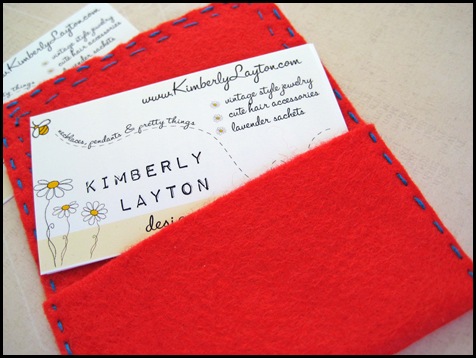 www.KimberlyLayton.com
vintage style jewelry
cute hair accessories
lavender sachets
www.KimberlyLayton.com
vintage style jewelry
cute hair accessories
lavender sachets
necklaces, pendants & pretty things
KIMBERLY
LAYTON